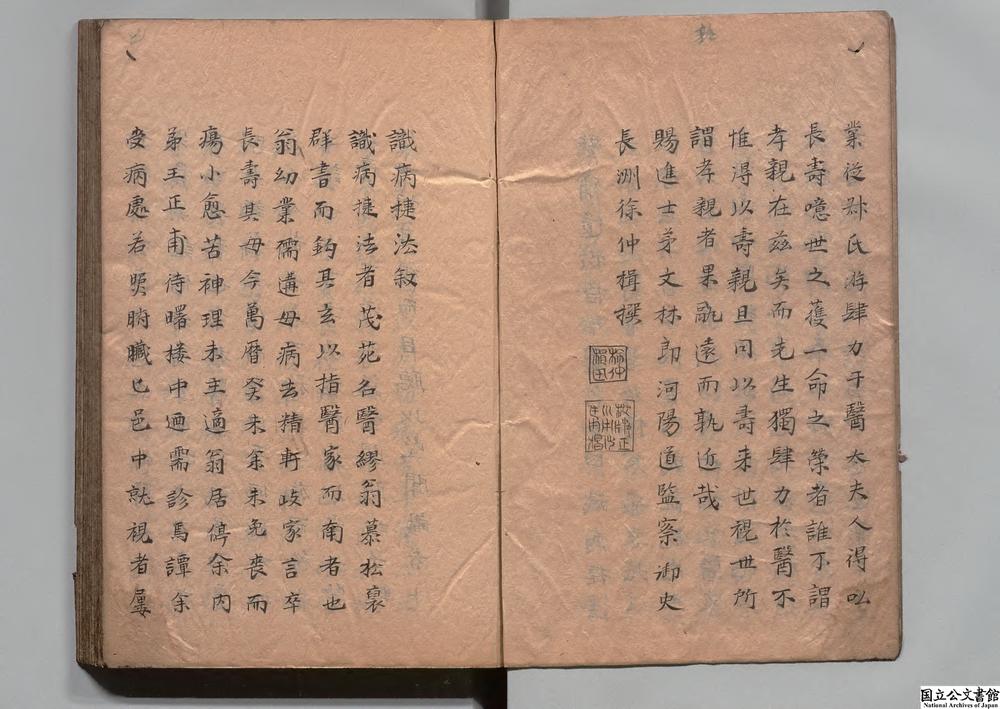 業從縣氏游肆力于醫太夫人得以
長壽噫世之獲一命之榮者誰不謂
孝親在茲矣而先生獨肆力於醫不
惟得以壽親且同以壽来世視世所
謂孝親者果䟽遠而孰近哉
賜進士苐文林郎河陽道監察御史
長洲徐仲楫撰
識病捷法叙
識病捷法者茂苑名醫繆翁慕松裒
群書而鈎其玄以指醫家而南者也
翁幼業儒遘母病去精軒岐家言卒
長壽其母今萬曆癸未余未免喪而
瘍小愈苦神理未主適翁居停余内
弟王正甫待曙楼中迺需診焉譚余
受病處若煛腑臟已邑中就視者屢
国立公文書館
National Archives of Japan